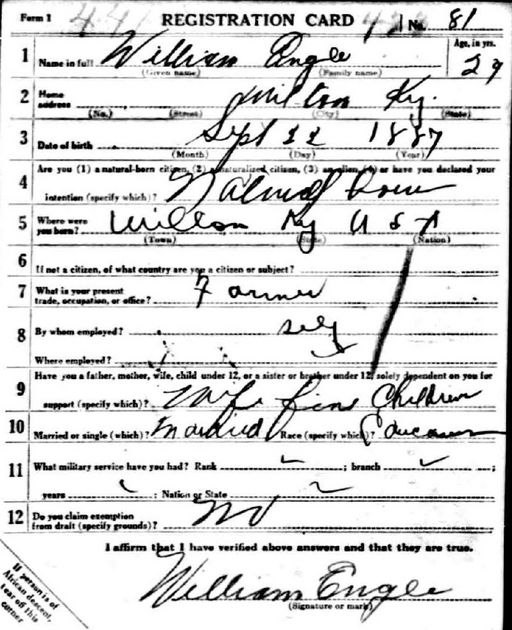 Form 1 REGISTRATION CARD No. 81
1 Name in full William Engle Age, in yrs. 29
(Given name) (Family name)
2 Home address Milton Ky.
(No.) (Street) (City) (State)
3 Date of birth Sept 22 1887
(Month) (Day) (Year)
4 Are you (1) a natural-born citizen, (2) a naturalized citizen, (3) an alien, (4) or have you declared your
intention (specify which)? Natural Born
5 Where were you born? Milton Ky U S A
(Town) (State) (Nation)
6 If not a citizen, of what country are you a citizen or subject?
7 What is your present trade, occupation, or office? Farmer
8 By whom employed? self
Where employed?
9 Have you a father, mother, wife, child under 12, or a sister or brother under 12, solely dependent on you for
support (specify which)? Wife five Children
10 Married or single (which)? Married Race (specify which)? Caucasian
11 What military service have you had? Rank ; branch ;
years ; Nation or State
12 Do you claim exemption from draft (specify grounds)? No
I affirm that I have verified above answers and that they are true.
William Engle
(Signature or mark)
If person is of
African descent,
tear off this
corner